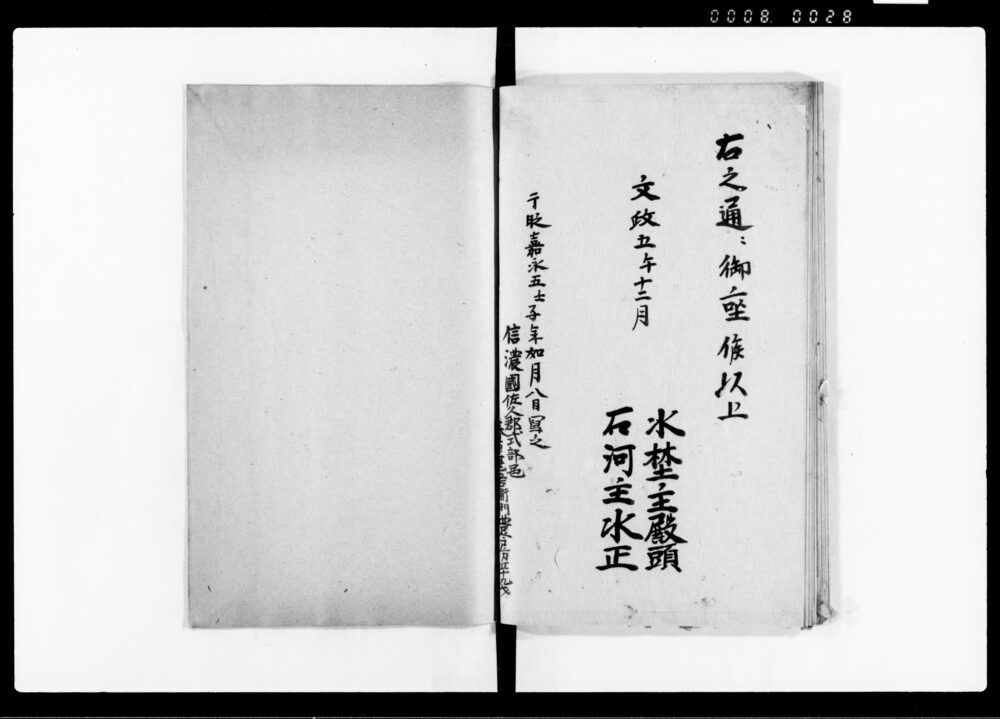 0008 0028
右之通ニ御座候以上
文政五午十二月
水埜主殿頭
石河主水正
于時嘉永五壬子年如月八日寫之
信濃國佐久郡式部邑
衛門